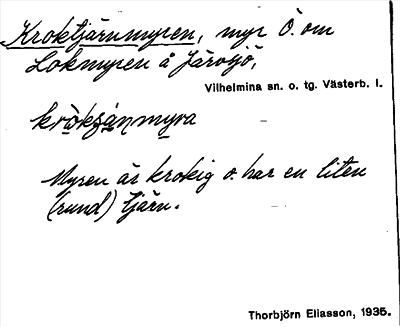 Kroktjärnmyren, myr Ö. om
Lokmyren å Järvsjö,
Vilhelmina sn. o. tg. Västerb. l.
kròkʒánmyra
Myren är krokig o. har en liten
(rund) tjärn.
Thorbjörn Eliasson, 1935.